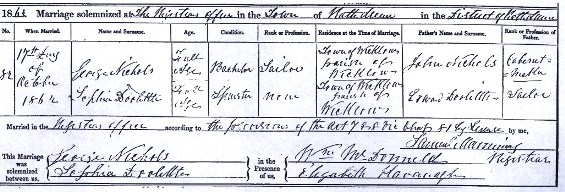 1862 Marriage solemnized at The Registrars Office in the Town of Rathdrum in the District of Rathdrum
No. When Married. Name and Surname. Age. Condition. Rank or Profession. Residence at the Time of Marriage. Father's Name and Surname. Rank or Profession of Father.
82 17th day of October 1862 George Nichols Full Age Bachelor Sailor Town of Wicklow parish of Wicklow John Nichols Cabinet-maker
Sophia Doolittle Full Age Spinster none Town of Wicklow parish of Wicklow Edward Doolittle Sailor
Married in the Registrars Office according to the provisions of the act 7 & 8 Vic chap 81 by License by me,
Manning Registrar
This Marriage was solemnized between us, George Nichols Sophia Doolittle in the Presence of us, Wm McDonnell Elizabeth Kavanagh